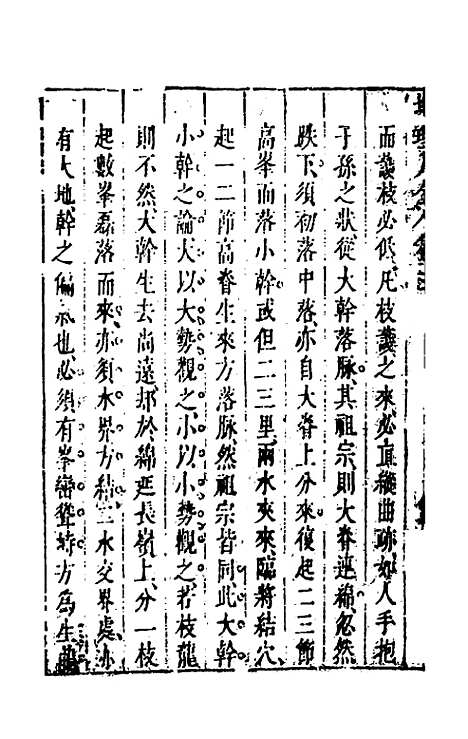 而護枝必低凡枝護之來必直縱曲跡如人手抱
子孫之狀從大幹落脉其祖宗則大脊連綿忽然
跌下須初落中落亦自大脊上分來復起二三節
高峯而落小幹或但二三里兩水夾來臨將結穴
起一二節高脊生來方落脉然祖宗皆同此大幹
小幹之論大以大勢觀之小以小勢觀之若枝龍
則不然大幹生去尚遠却於綿延長嶺上分一枝
起數峯磊落而來亦須水界方結二水交界處亦
有大地幹之偏氣也必須有峯巒聳峙方為生